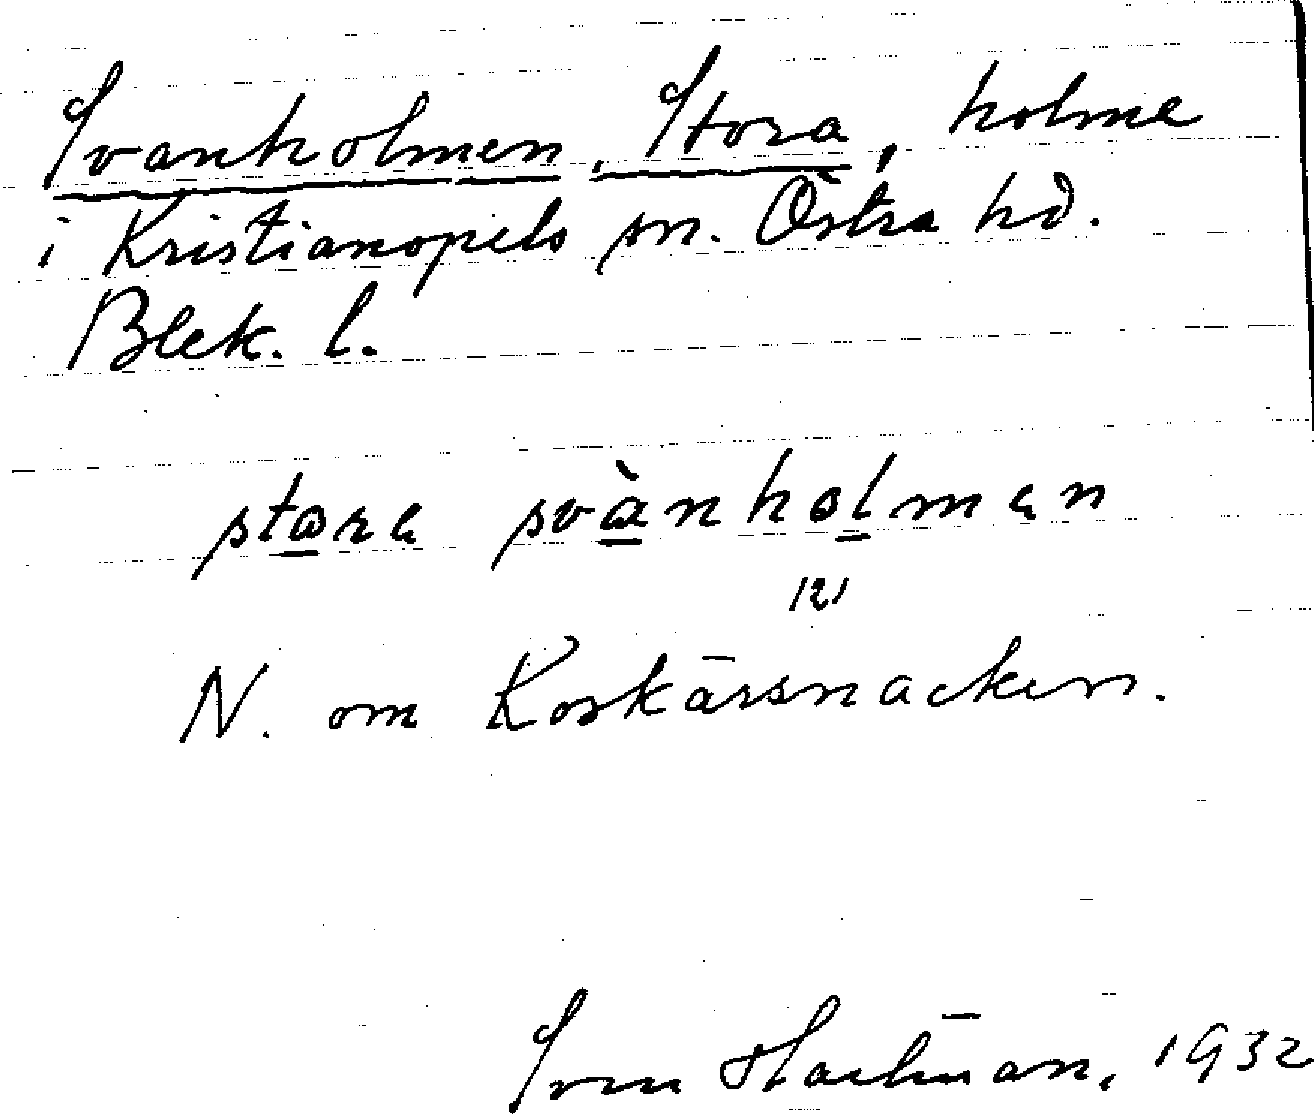 Svanholmen, Stora, holme
i Kristianopels sn. Östra hd.
Blek. l.
stora svànholmen
121
N. om Korkärsnacken.
Sven 1932